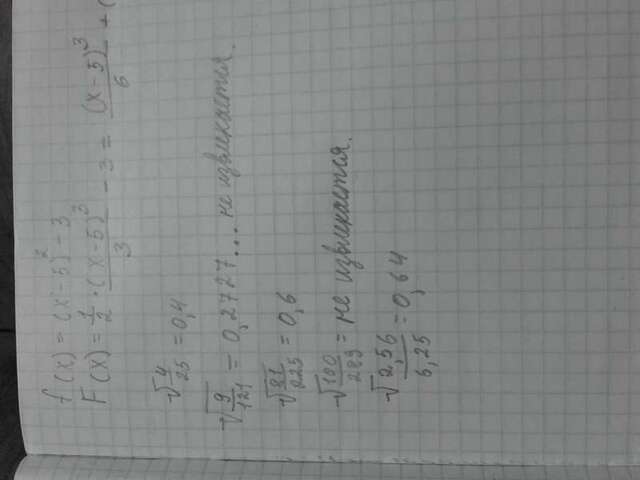 f(x) = (x - 5)² - 3
F(x) = 1/2 · (x - 5)³/3 - 3 = (x - 5)³/6 + (
√4/25 = 0,4
√9/121 = 0,2727... не извлекается.
√81/225 = 0,6
√100/289 = не извлекается.
√2,56/6,25 = 0,64